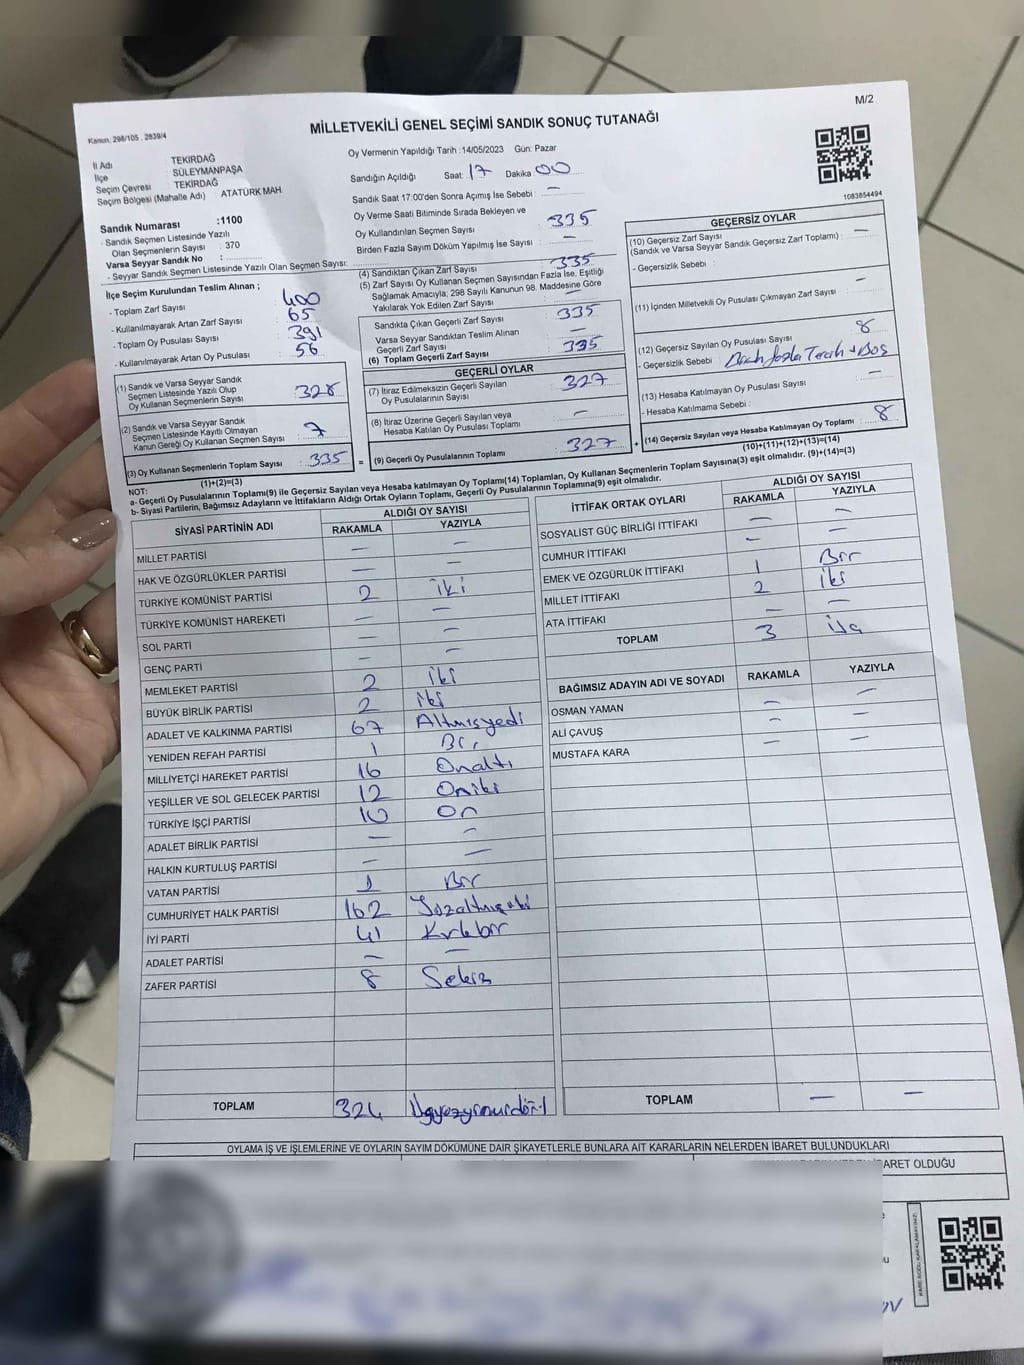 M/2
Kanun. 298/105 . 2839/4
MİLLETVEKİLİ GENEL SEÇİMİ SANDIK SONUÇ TUTANAĞI
İl Adı TEKİRDAĞ
İlçe SÜLEYMANPAŞA
Seçim Çevresi : TEKİRDAĞ
Seçim Bölgesi (Mahalle Adı) : ATATÜRK MAH.
Sandık Numarası :1100
- Sandık Seçmen Listesinde Yazılı
Olan Seçmenlerin Sayısı : 370
Varsa Seyyar Sandık No :
- Seyyar Sandık Seçmen Listesinde Yazılı Olan Seçmen Sayısı:
İlçe Seçim Kurulundan Teslim Alınan ;
- Toplam Zarf Sayısı : 400
- Kullanılmayarak Artan Zarf Sayısı : 65
- Toplam Oy Pusulası Sayısı : 391
- Kullanılmayarak Artan Oy Pusulası : 56
(1) Sandık ve Varsa Seyyar Sandık
Seçmen Listesinde Yazılı Olup
Oy Kullanan Seçmenlerin Sayısı : 328
(2) Sandık ve Varsa Seyyar Sandık
Seçmen Listesinde Kayıtlı Olmayan
Kanun Gereği Oy Kullanan Seçmen Sayısı : 7
(3) Oy Kullanan Seçmenlerin Toplam Sayısı : 335
(1)+(2)=(3)
Oy Vermenin Yapıldığı Tarih :14/05/2023 Gün: Pazar
Sandığın Açıldığı Saat: 17 Dakika 00
Sandık Saat 17:00'den Sonra Açımış İse Sebebi : —
Oy Verme Saati Bitiminde Sırada Bekleyen ve
Oy Kullandırılan Seçmen Sayısı : 335
Birden Fazla Sayım Döküm Yapılmış İse Sayısı : —
(4) Sandıktan Çıkan Zarf Sayısı : 335
(5) Zarf Sayısı Oy Kullanan Seçmen Sayısından Fazla İse, Eşitliği
Sağlamak Amacıyla, 298 Sayılı Kanunun 98. Maddesine Göre
Yakılarak Yok Edilen Zarf Sayısı : —
Sandıkta Çıkan Geçerli Zarf Sayısı : 335
Varsa Seyyar Sandıktan Teslim Alınan
Geçerli Zarf Sayısı : —
(6) Toplam Geçerli Zarf Sayısı : 335
GEÇERLİ OYLAR
(7) İtiraz Edilmeksizin Geçerli Sayılan
Oy Pusulalarının Sayısı : 327
(8) İtiraz Üzerine Geçerli Sayılan veya
Hesaba Katılan Oy Pusulası Toplamı : —
= (9) Geçerli Oy Pusulalarının Toplamı : 327
1083854494
GEÇERSİZ OYLAR
(10) Geçersiz Zarf Sayısı
(Sandık ve Varsa Seyyar Sandık Geçersiz Zarf Toplamı) : —
- Geçersizlik Sebebi :
(11) İçinden Milletvekili Oy Pusulası Çıkmayan Zarf Sayısı : —
(12) Geçersiz Sayılan Oy Pusulası Sayısı : 8
- Geçersizlik Sebebi : fazla Tercih + Boş
(13) Hesaba Katılmayan Oy Pusulası Sayısı : —
- Hesaba Katılmama Sebebi :
+ (14) Geçersiz Sayılan veya Hesaba Katılmayan Oy Toplamı : 8
(10)+(11)+(12)+(13)=(14)
NOT:
a- Geçerli Oy Pusulalarının Toplamı(9) ile Geçersiz Sayılan veya Hesaba katılmayan Oy Toplamı(14) Toplamları, Oy Kullanan Seçmenlerin Toplam Sayısına(3) eşit olmalıdır. (9)+(14)=(3)
b- Siyasi Partilerin, Bağımsız Adayların ve İttifakların Aldığı Ortak Oyların Toplamı, Geçerli Oy Pusulalarının Toplamına(9) eşit olmalıdır.
SİYASİ PARTİNİN ADI ALDIĞI OY SAYISI
RAKAMLA YAZIYLA
MİLLET PARTİSİ — —
HAK VE ÖZGÜRLÜKLER PARTİSİ — —
TÜRKİYE KOMÜNİST PARTİSİ 2 iki
TÜRKİYE KOMÜNİST HAREKETİ — —
SOL PARTİ — —
GENÇ PARTİ — —
MEMLEKET PARTİSİ 2 iki
BÜYÜK BİRLİK PARTİSİ 2 iki
ADALET VE KALKINMA PARTİSİ 67 Altmışyedi
YENİDEN REFAH PARTİSİ 1 Bir
MİLLİYETÇİ HAREKET PARTİSİ 16 Onaltı
YEŞİLLER VE SOL GELECEK PARTİSİ 12 Oniki
TÜRKİYE İŞÇİ PARTİSİ 10 On
ADALET BİRLİK PARTİSİ — —
HALKIN KURTULUŞ PARTİSİ — —
VATAN PARTİSİ 1 Bir
CUMHURİYET HALK PARTİSİ 162 Yüzaltmışiki
İYİ PARTİ 41 Kırkbir
ADALET PARTİSİ — —
ZAFER PARTİSİ 8 Sekiz
TOPLAM 324 Üçyüzyirmidört
İTTİFAK ORTAK OYLARI ALDIĞI OY SAYISI
RAKAMLA YAZIYLA
SOSYALİST GÜÇ BİRLİĞİ İTTİFAKI — —
CUMHUR İTTİFAKI — —
EMEK VE ÖZGÜRLÜK İTTİFAKI 1 Bir
MİLLET İTTİFAKI 2 iki
ATA İTTİFAKI — —
TOPLAM 3 üç
BAĞIMSIZ ADAYIN ADI VE SOYADI RAKAMLA YAZIYLA
OSMAN YAMAN — —
ALİ ÇAVUŞ — —
MUSTAFA KARA — —
TOPLAM — —
OYLAMA İŞ VE İŞLEMLERİNE VE OYLARIN SAYIM DÖKÜMÜNE DAİR ŞİKAYETLERLE BUNLARA AİT KARARLARIN NELERDEN İBARET BULUNDUKLARI
ARET OLDUĞU